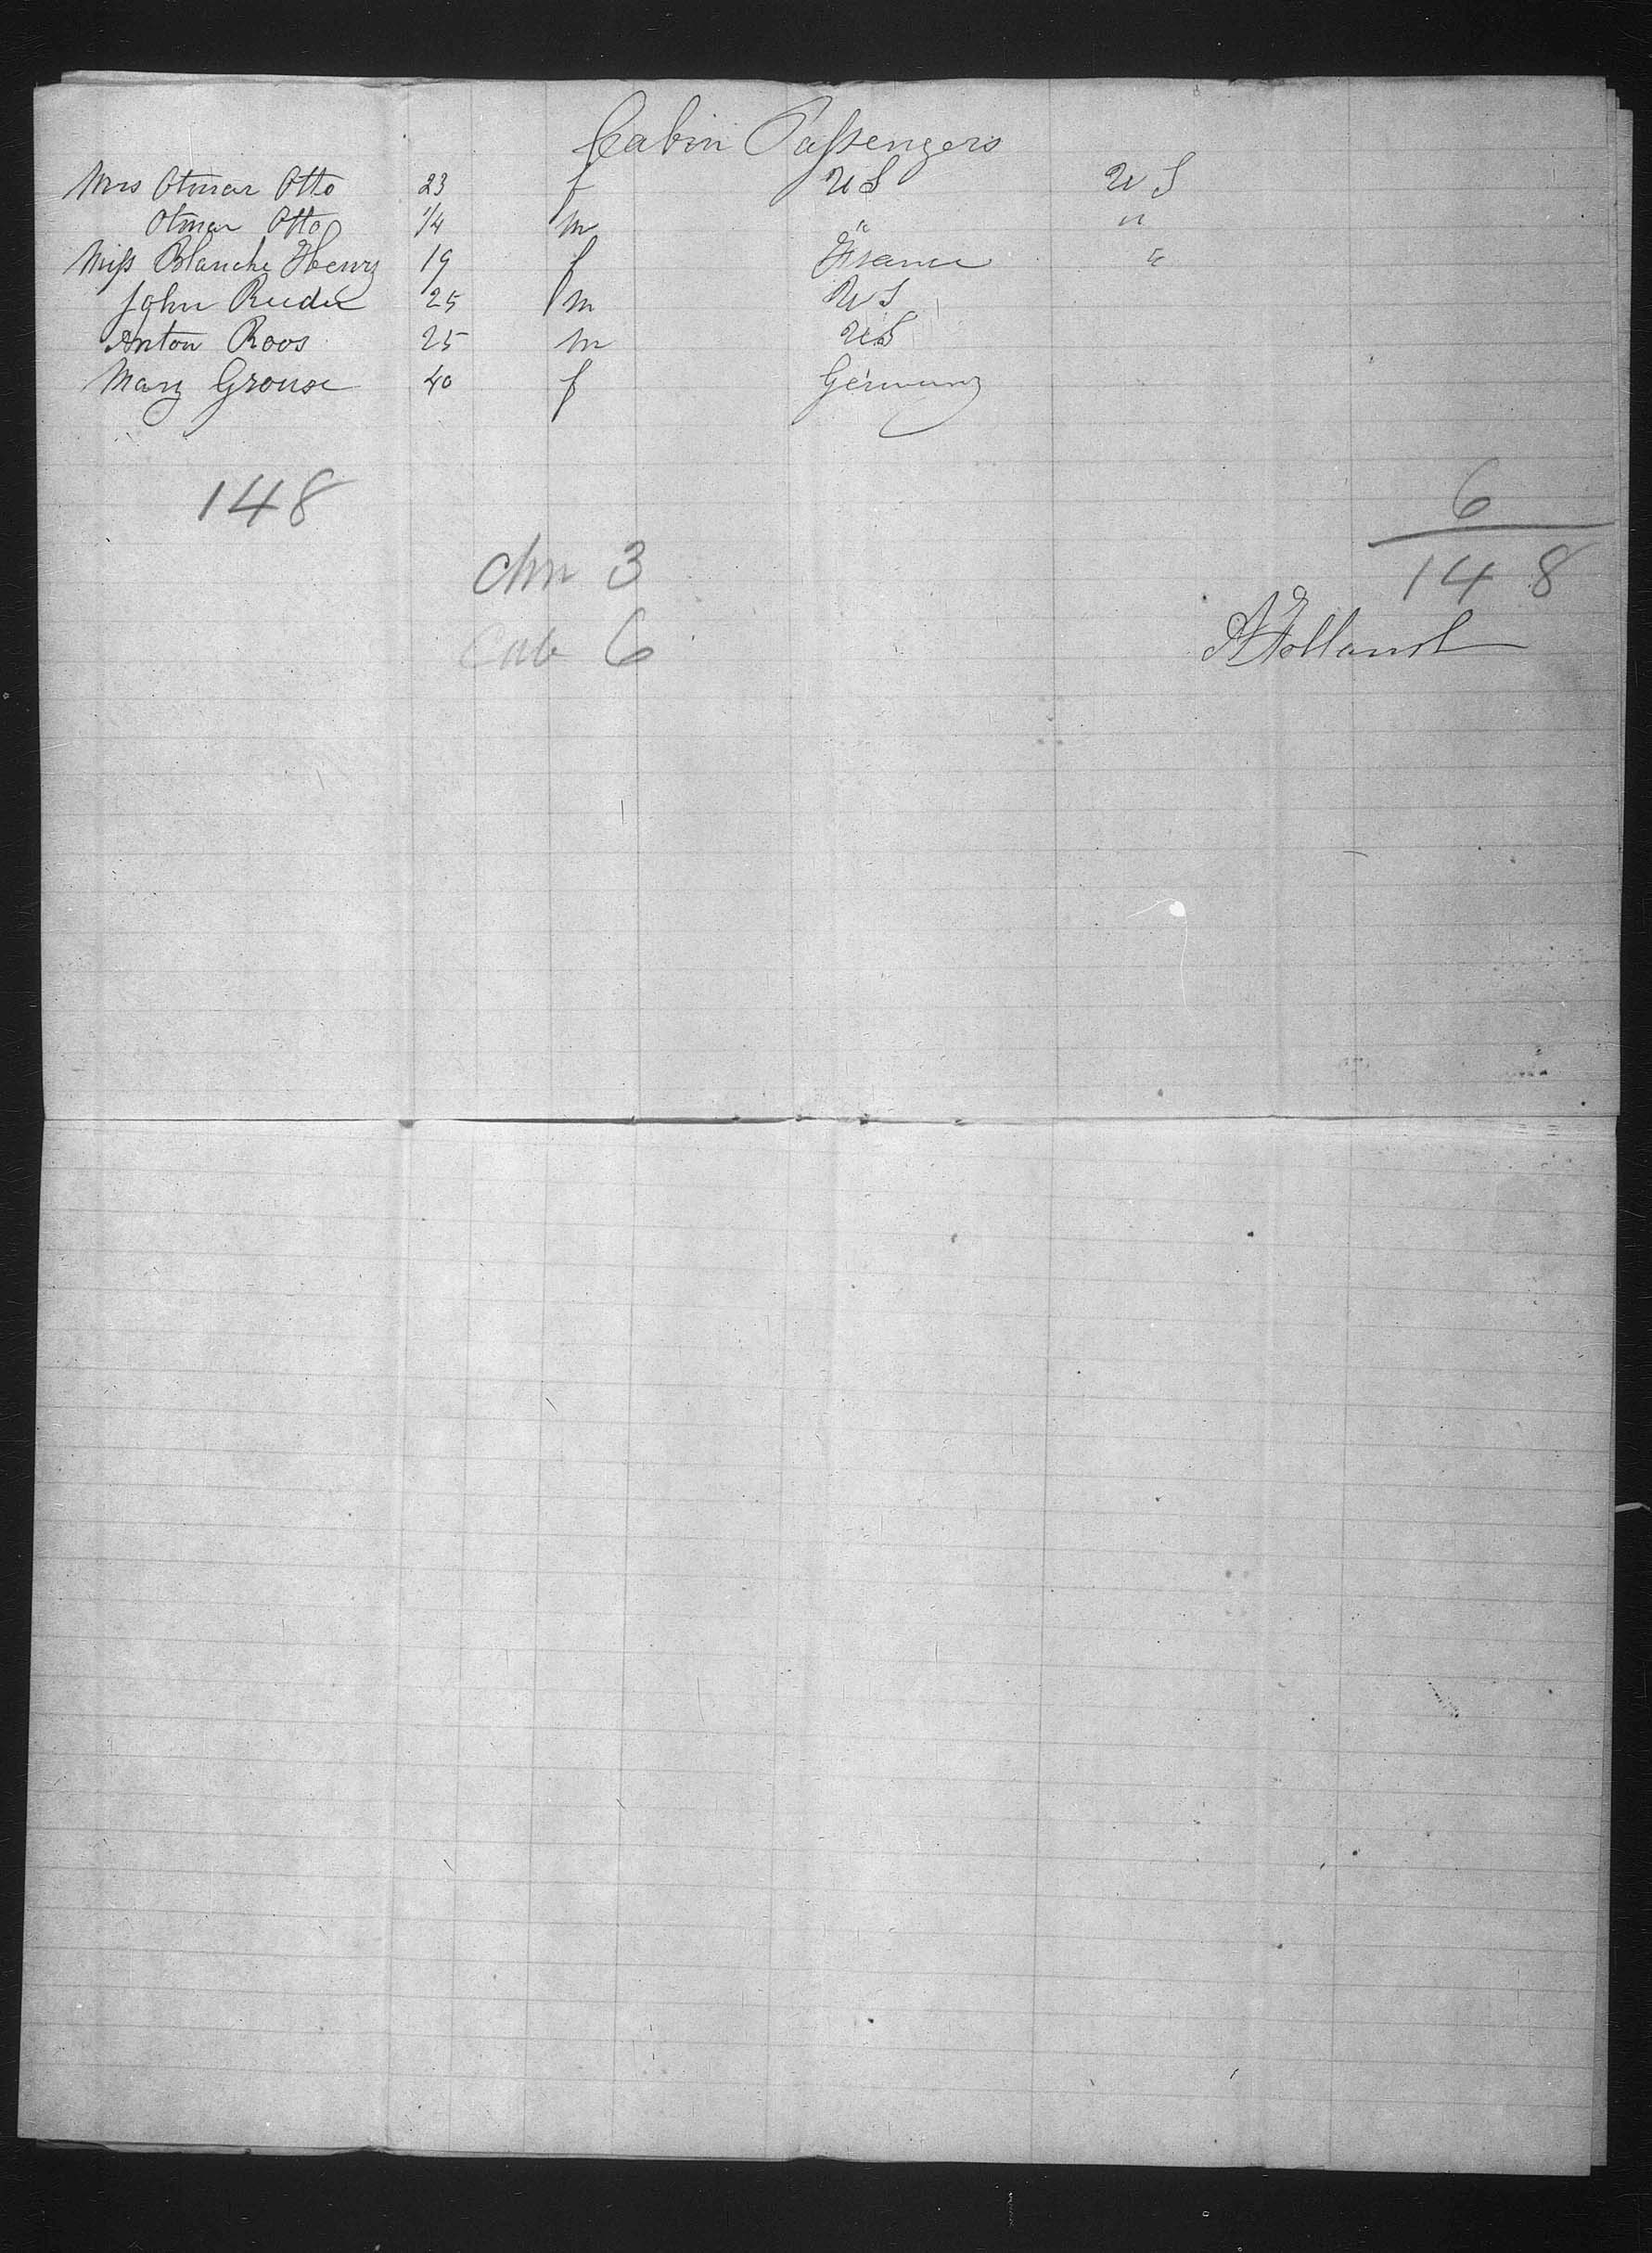 Cabin Passengers
Mrs Otmar Otto 23 f US US
Otmar Otto 1/4 m " "
Miss Blanche Henry 19 f France "
John Reeder 25 m US
Anton Roos 25 m US
Mary Grouse 40 f Germany
148 6
chn 3 148
Cab 6 Holland